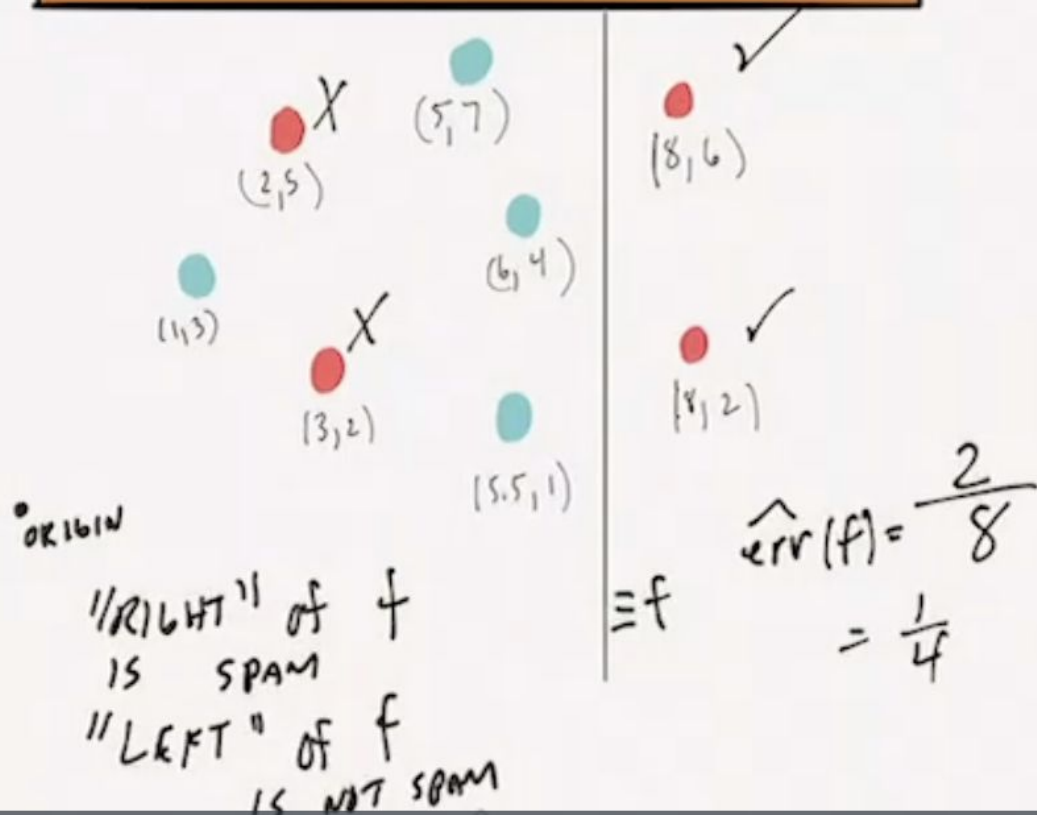 X
(5,7)
(2,5)
✓
(8,6)
(6,4)
(1,3)
X
(3,2)
✓
(8,2)
(5.5,1)
ORIGIN
"RIGHT" of f
IS SPAM
"LEFT" of f
IS NOT SPAM
≡f
err^(f) = 2/8
= 1/4